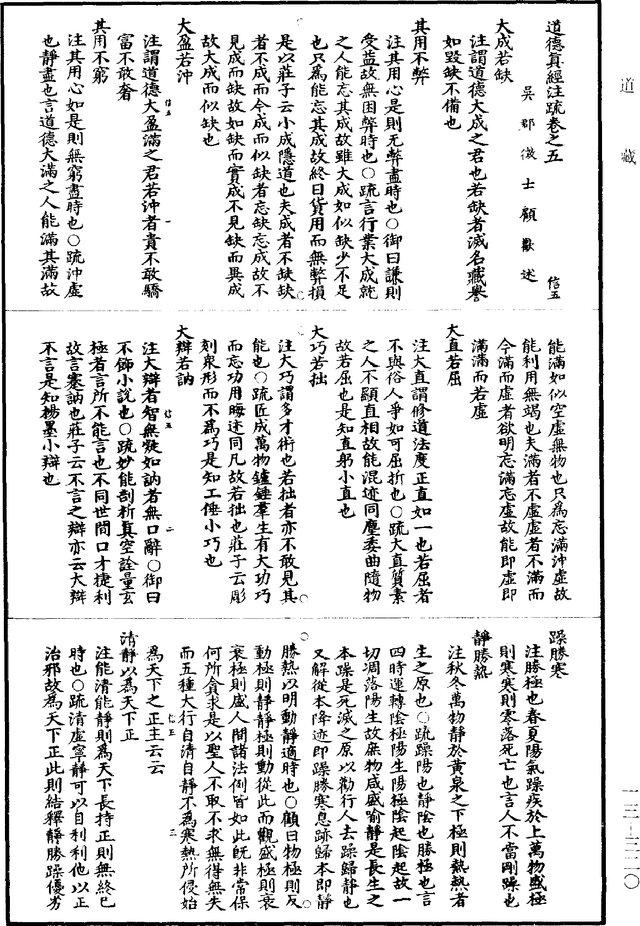 道藏
道德真經注疏卷之五
信五
吳郡徵士顧歡述
大成若缺
注謂道德大成之君也若缺者滅名藏譽
如毀缺不備也
其用不弊
注其用心是則无弊盡時也○御曰謙則
受益故無困弊時也○疏言行業大成就
之人能忘其成故雖大成如似缺少不足
也只爲能忘其成故終日貨用而無弊損
是以莊子云小成隱道也夫成者不缺缺
者不成而今成而似缺者忘缺忘成故不
見成而缺故如缺而實成不見缺而異成
故大成而似缺也
大盈若沖
注謂道德大盈滿之君若沖者貴不敢驕
富不敢奢
其用不窮
注其用心如是則無窮盡時也○疏沖虛
也靜盡也言道德大滿之人能滿其滿故
能滿如似空虛無物也只爲忘滿沖虛故
能利用無竭也夫滿者不虛虛者不滿而
今滿而虛者欲明忘滿忘虛故能即虛即
滿滿而若虛
大直若屈
注大直謂修道法度正直如一也若屈者
不與俗人爭如可屈折也○疏大直質素
之人不顯直相故能混迹同塵委曲隨物
故若屈也是知直躬小直也
大巧若拙
注大巧謂多才術也若拙者亦不敢見其
能也○疏匠成萬物鑪錘羣生有大功巧
而忘功用晦迹同凡故若拙也莊子云彫
刻衆形而不爲巧是知工倕小巧也
大辯若訥
注大辯者智無疑如訥者無口辭○御曰
不飾小說也○疏妙能剖析真空詮量玄
極者言所不能言也不同世間口才捷利
故言蹇訥也莊子云不言之辯亦云大辯
不言是知楊墨小辯也
躁勝寒
注勝極也春夏陽氣躁疾於上萬物盛極
則寒寒則零落死亡也言人不當剛躁也
靜勝熱
注秋冬萬物靜於黃泉之下極則熱熱者
生之原也○疏躁陽也靜陰也勝極也言
四時運轉陰極陽生陽極陰起陰起故一
切凋落陽生故庶物咸盛喻靜是長生之
本躁是死滅之原以勸行人去躁歸靜也
又解從本降迹即躁勝寒息跡歸本即靜
勝熱以明動靜適時也○顧曰物極則反
動極則靜靜極則動從此而觀盛極則衰
衰極則盛人間諸法例皆如此既非常保
何所貪求是以聖人不取不求無得無失
而五種大行自清自靜不爲寒熱所侵始
爲天下之正主云云
清靜以爲天下正
注能清能靜則爲天下長持正則無終已
時也○疏清虛寧靜可以自利利他以正
治邪故爲天下正此則結釋靜勝躁優劣